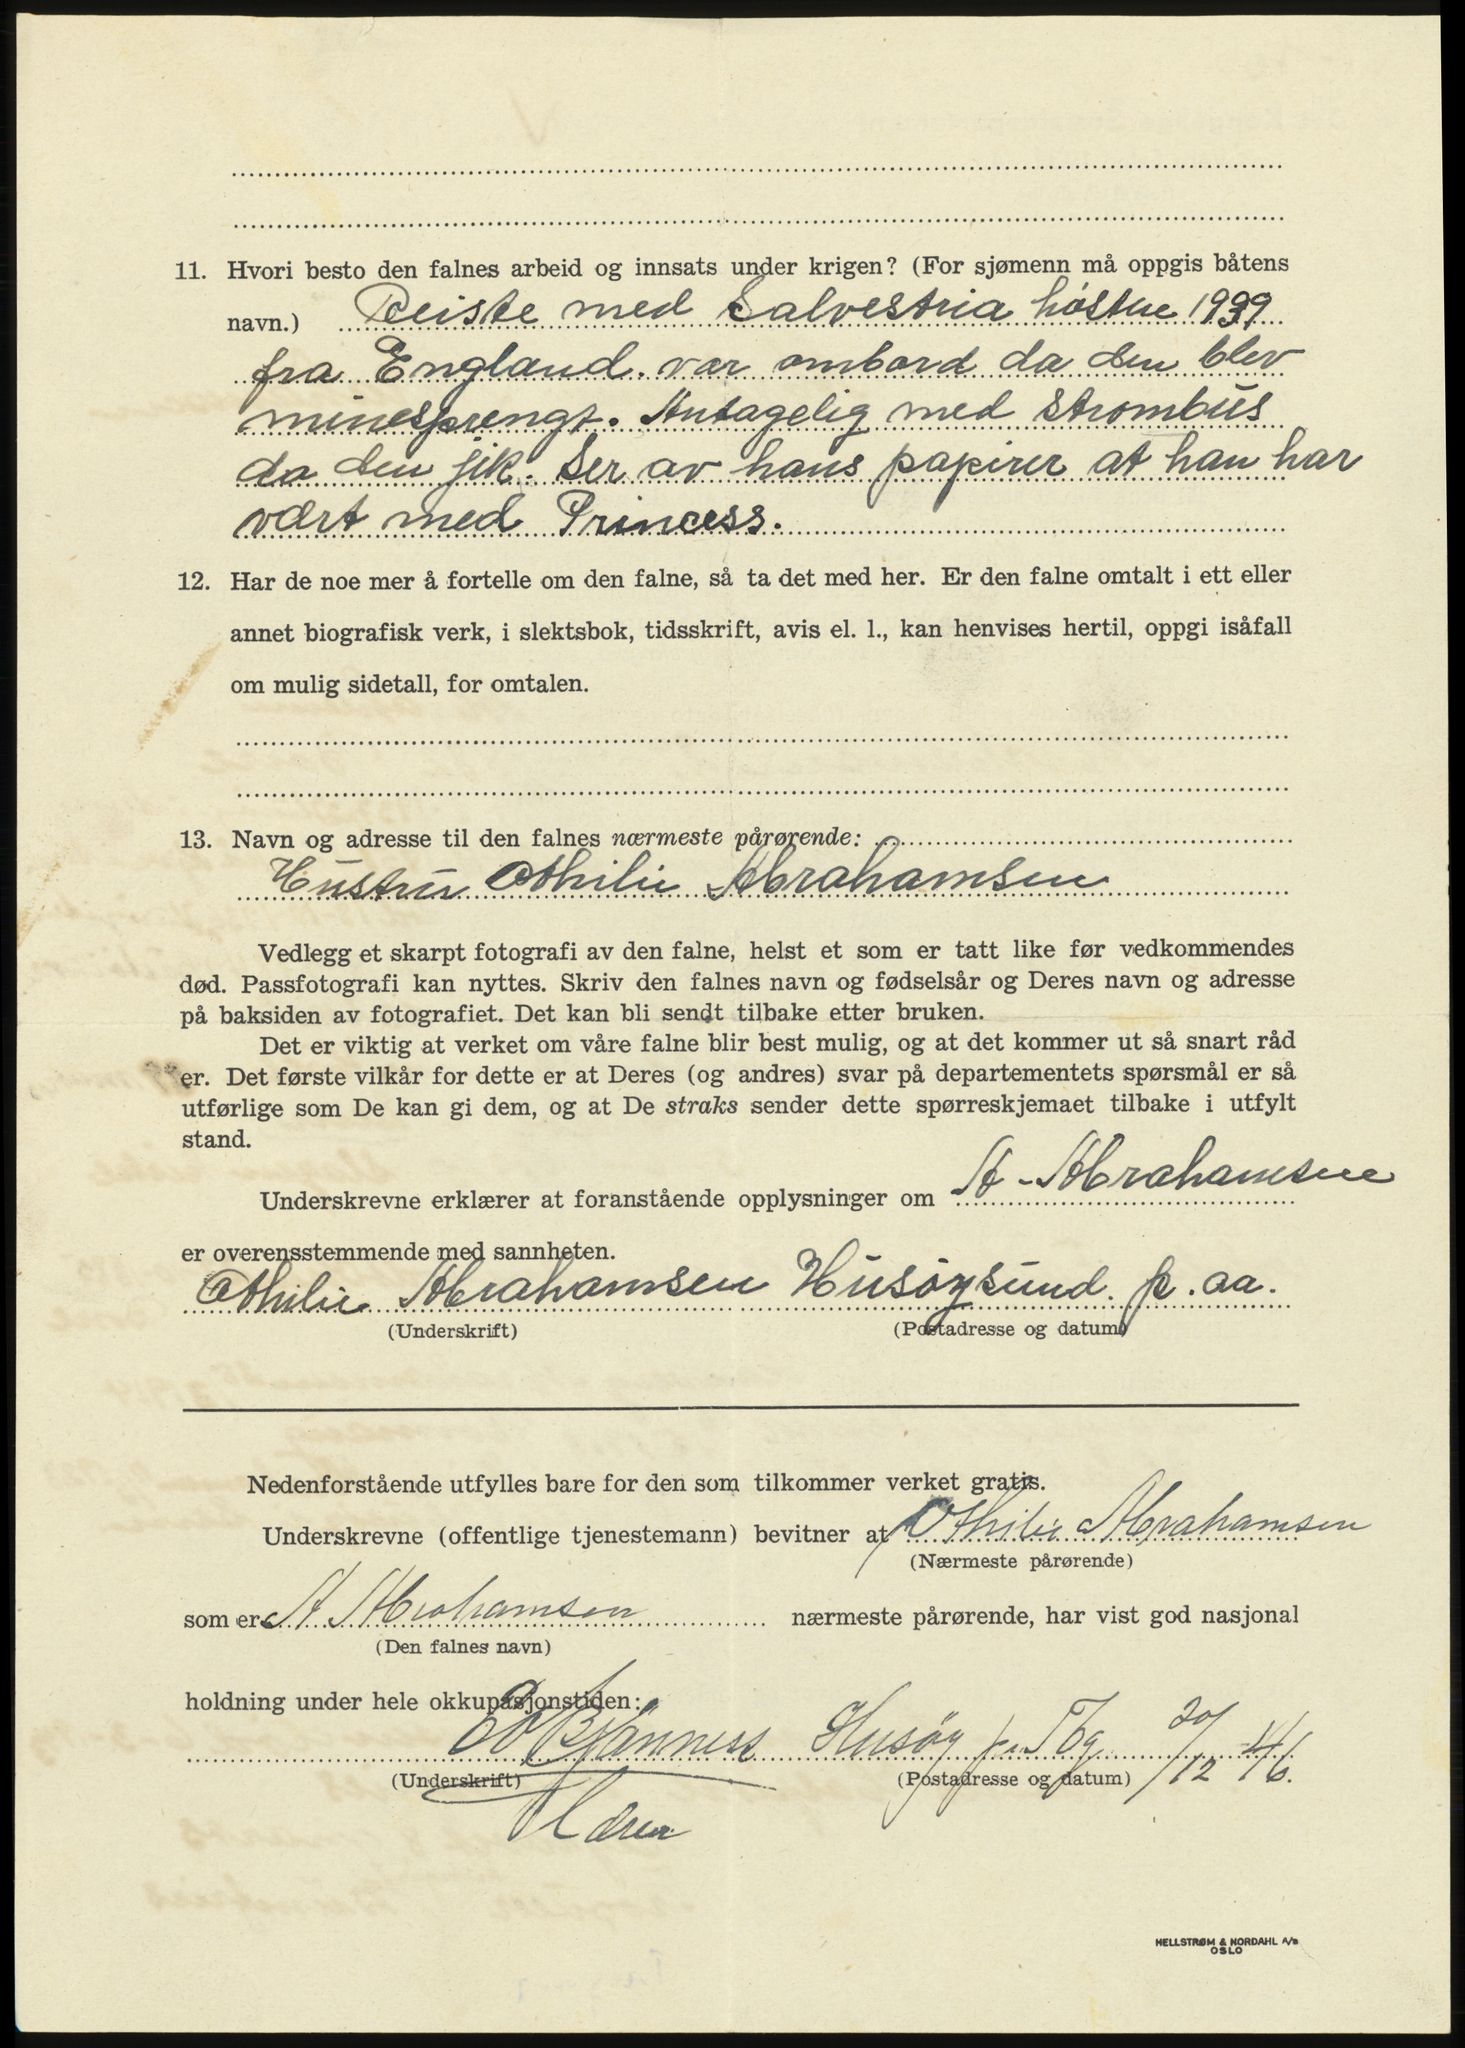 11. Hvori besto den falnes arbeid og innsats under krigen? (For sjømenn må oppgis båtens
navn.) Reiste med Salvestria høsten 1939
fra England. var ombord da den blev
minesprengt. Antagelig med Strombus
da den fik. Ser av hans papirer at han har
vært med Princess.
12. Har de noe mer å fortelle om den falne, så ta det med her. Er den falne omtalt i ett eller
annet biografisk verk, i slektsbok, tidsskrift, avis el. l., kan henvises hertil, oppgi isåfall
om mulig sidetall, for omtalen.
13. Navn og adresse til den falnes nærmeste pårørende:
Hustru Othilie Abrahamsen
Vedlegg et skarpt fotografi av den falne, helst et som er tatt like før vedkommendes
død. Passfotografi kan nyttes. Skriv den falnes navn og fødselsår og Deres navn og adresse
på baksiden av fotografiet. Det kan bli sendt tilbake etter bruken.
Det er viktig at verket om våre falne blir best mulig, og at det kommer ut så snart råd
er. Det første vilkår for dette er at Deres (og andres) svar på departementets spørsmål er så
utførlige som De kan gi dem, og at De straks sender dette spørreskjemaet tilbake i utfylt
stand.
Underskrevne erklærer at foranstående opplysninger om A. Abrahamsen
er overensstemmende med sannheten.
Othilie Abrahamsen Husøysund. p. aa.
(Underskrift) (Postadresse og datum)
Nedenforstående utfylles bare for den som tilkommer verket gratis.
Underskrevne (offentlige tjenestemann) bevitner at Othilie Abrahamsen
(Nærmeste pårørende)
som er A. Abrahamsen nærmeste pårørende, har vist god nasjonal
(Den falnes navn)
holdning under hele okkupasjonstiden:
Husøy pr. Tbg 20/12 46.
(Underskrift) (Postadresse og datum)
HELLSTRØM & NORDAHL A/S
OSLO